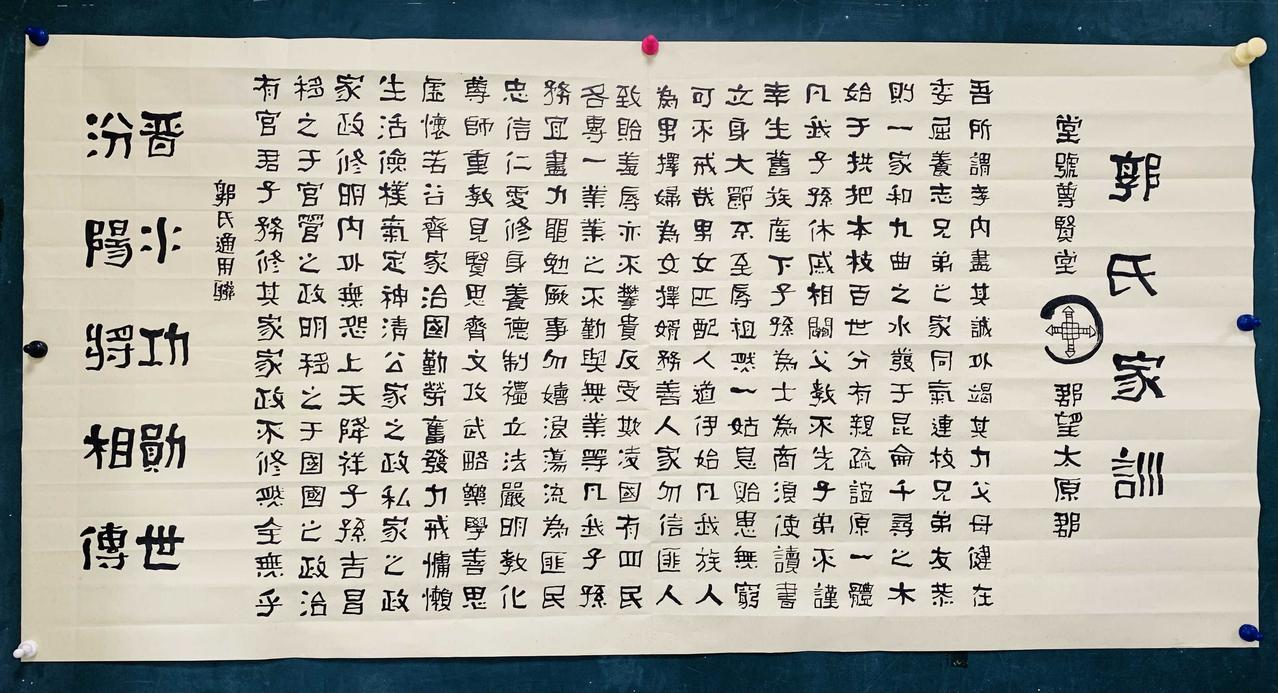 郭氏家訓
堂號尊賢堂
郡望太原郡
吾所謂孝内盡其誠以竭其力父母健在
委屈養志兄弟之家同氣連枝兄弟友恭
則一家和九曲之水發于昆侖千尋之木
始于拱把本枝百世分有親疏誼原一體
凡我子孫休戚相關父教不先子弟不謹
幸生舊族産下子孫為士為商須使讀書
立身大節不至辱祖然一姑息貽患無窮
可不戒哉男女匹配人道伊始凡我族人
為男擇婦為女擇婿務善人家勿信匪人
致貽羞辱亦不攀貴反受欺凌國有四民
各專一業業之不勤與無業等凡我子孫
務宜盡力黽勉厥事勿嬉浪蕩流為匪民
忠信仁愛修身養德制禮立法嚴明教化
尊師重教見賢思齊文攻武略樂學善思
虛懷若谷齊家治國勤勞奮發力戒慵懶
生活儉樸氣定神清公家之政私家之政
家政修明内外無怨上天降祥子孫吉昌
移之于官管之政明移之于國國之政治
有官君子務修其家家政不修然全無乎
郭氏通用聯
晉水功勛世
汾陽將相傳